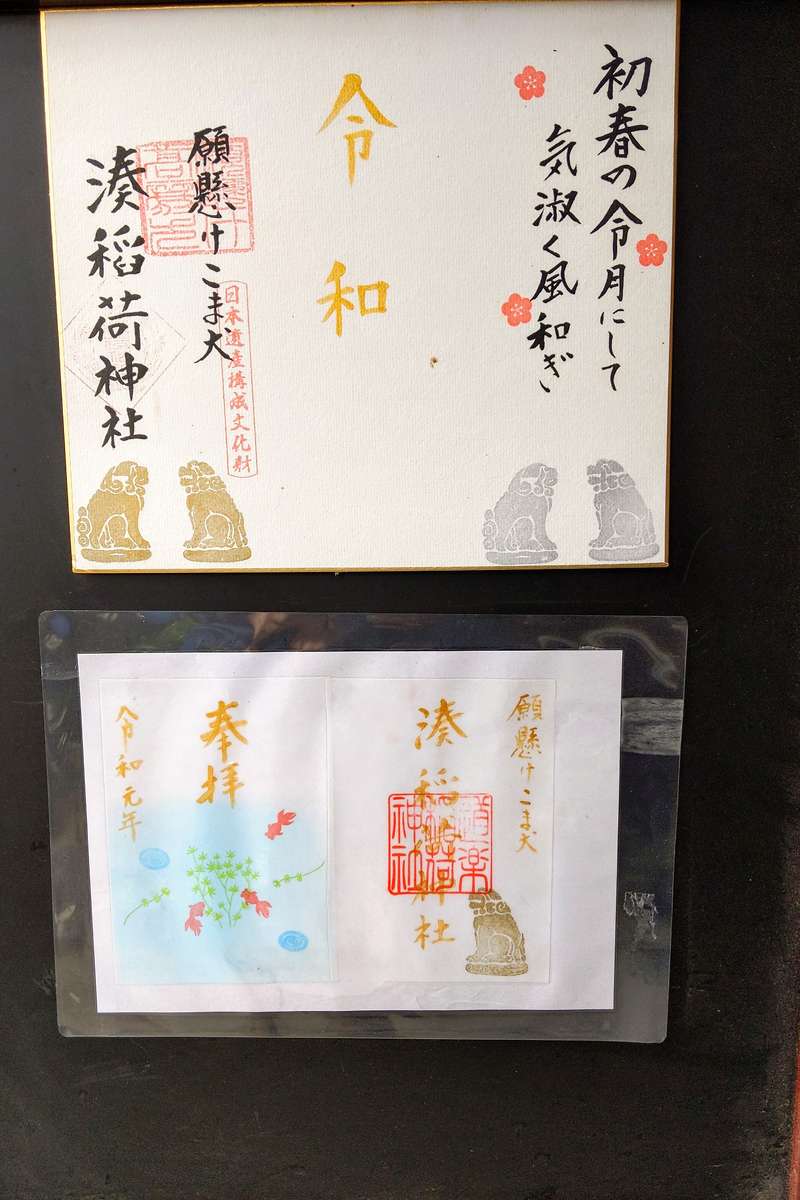 初春の令月にして
気淑く風和ぎ
令和
願懸けこま犬
日本遺産構成文化財
湊稲荷神社
願懸けこま犬
湊稲荷神社
奉拝
令和元年